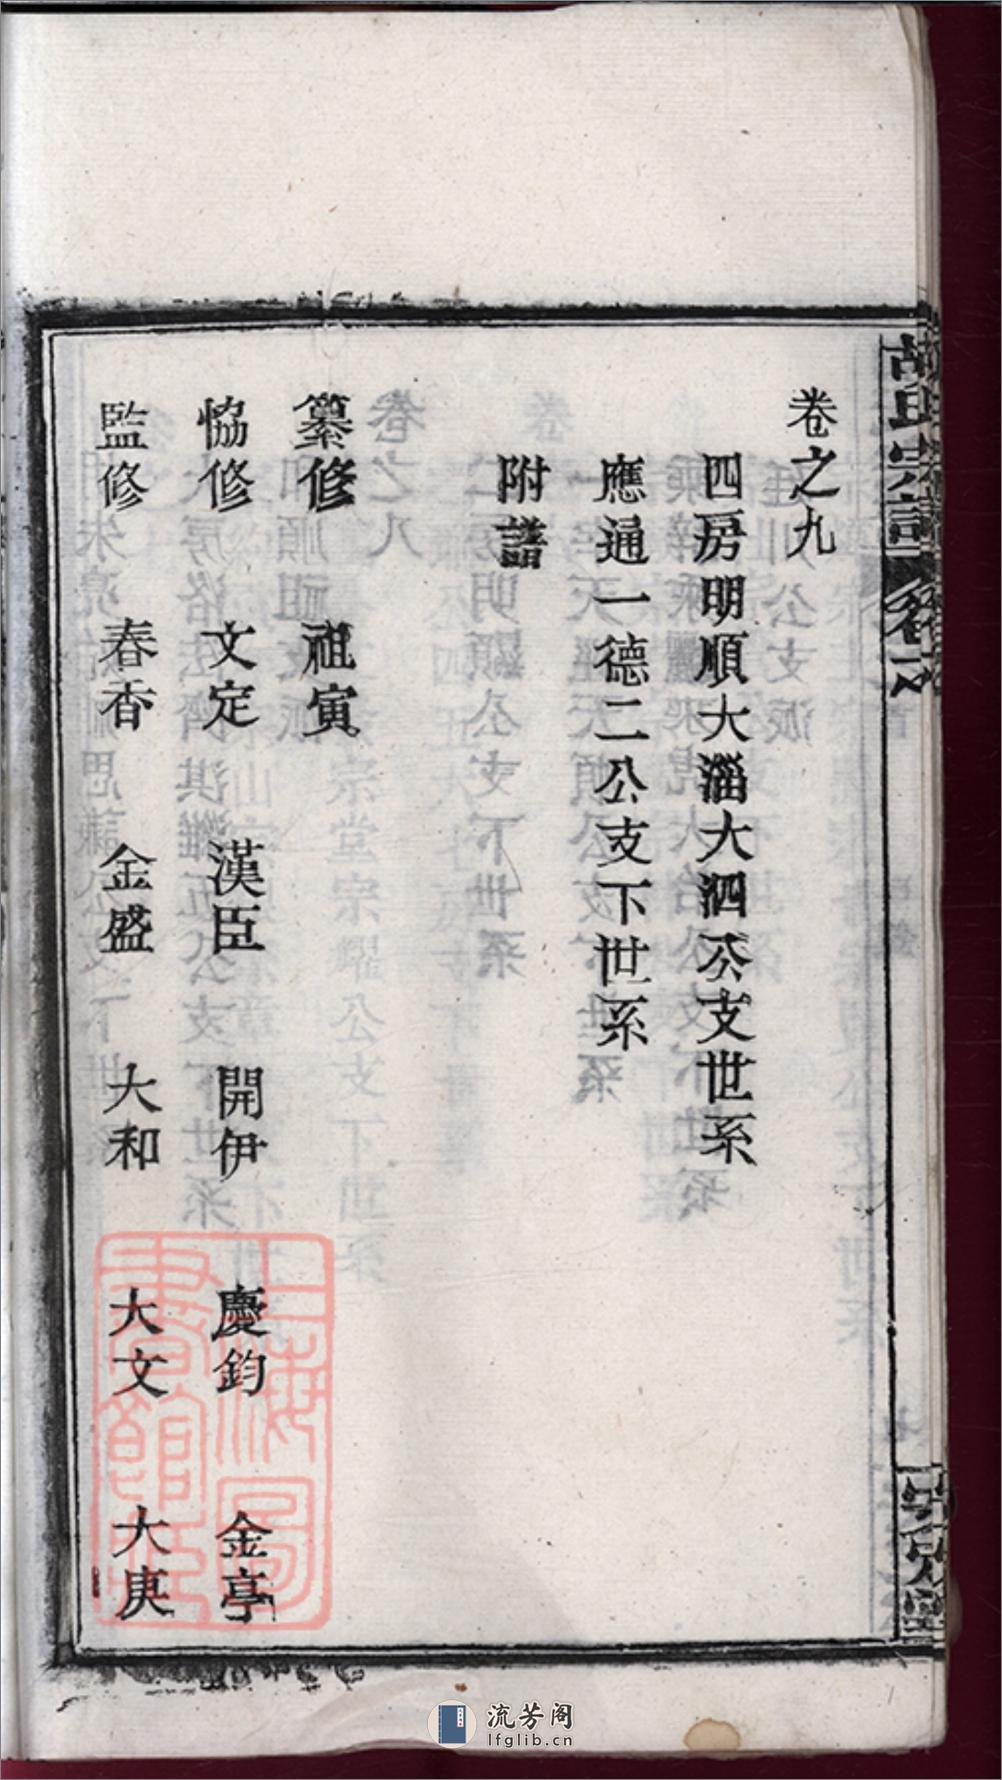 卷之九
四房明順大淄大泗公支世系
應通一德二公支下世系
附譜
纂修 祖寅
恊修 文定 漢臣 開伊 慶鈞 金亭
監修 春香 金盛 大和 大文 大庚
胡氏宗譜
上海圖書館藏
流芳阁
lfglib.cn